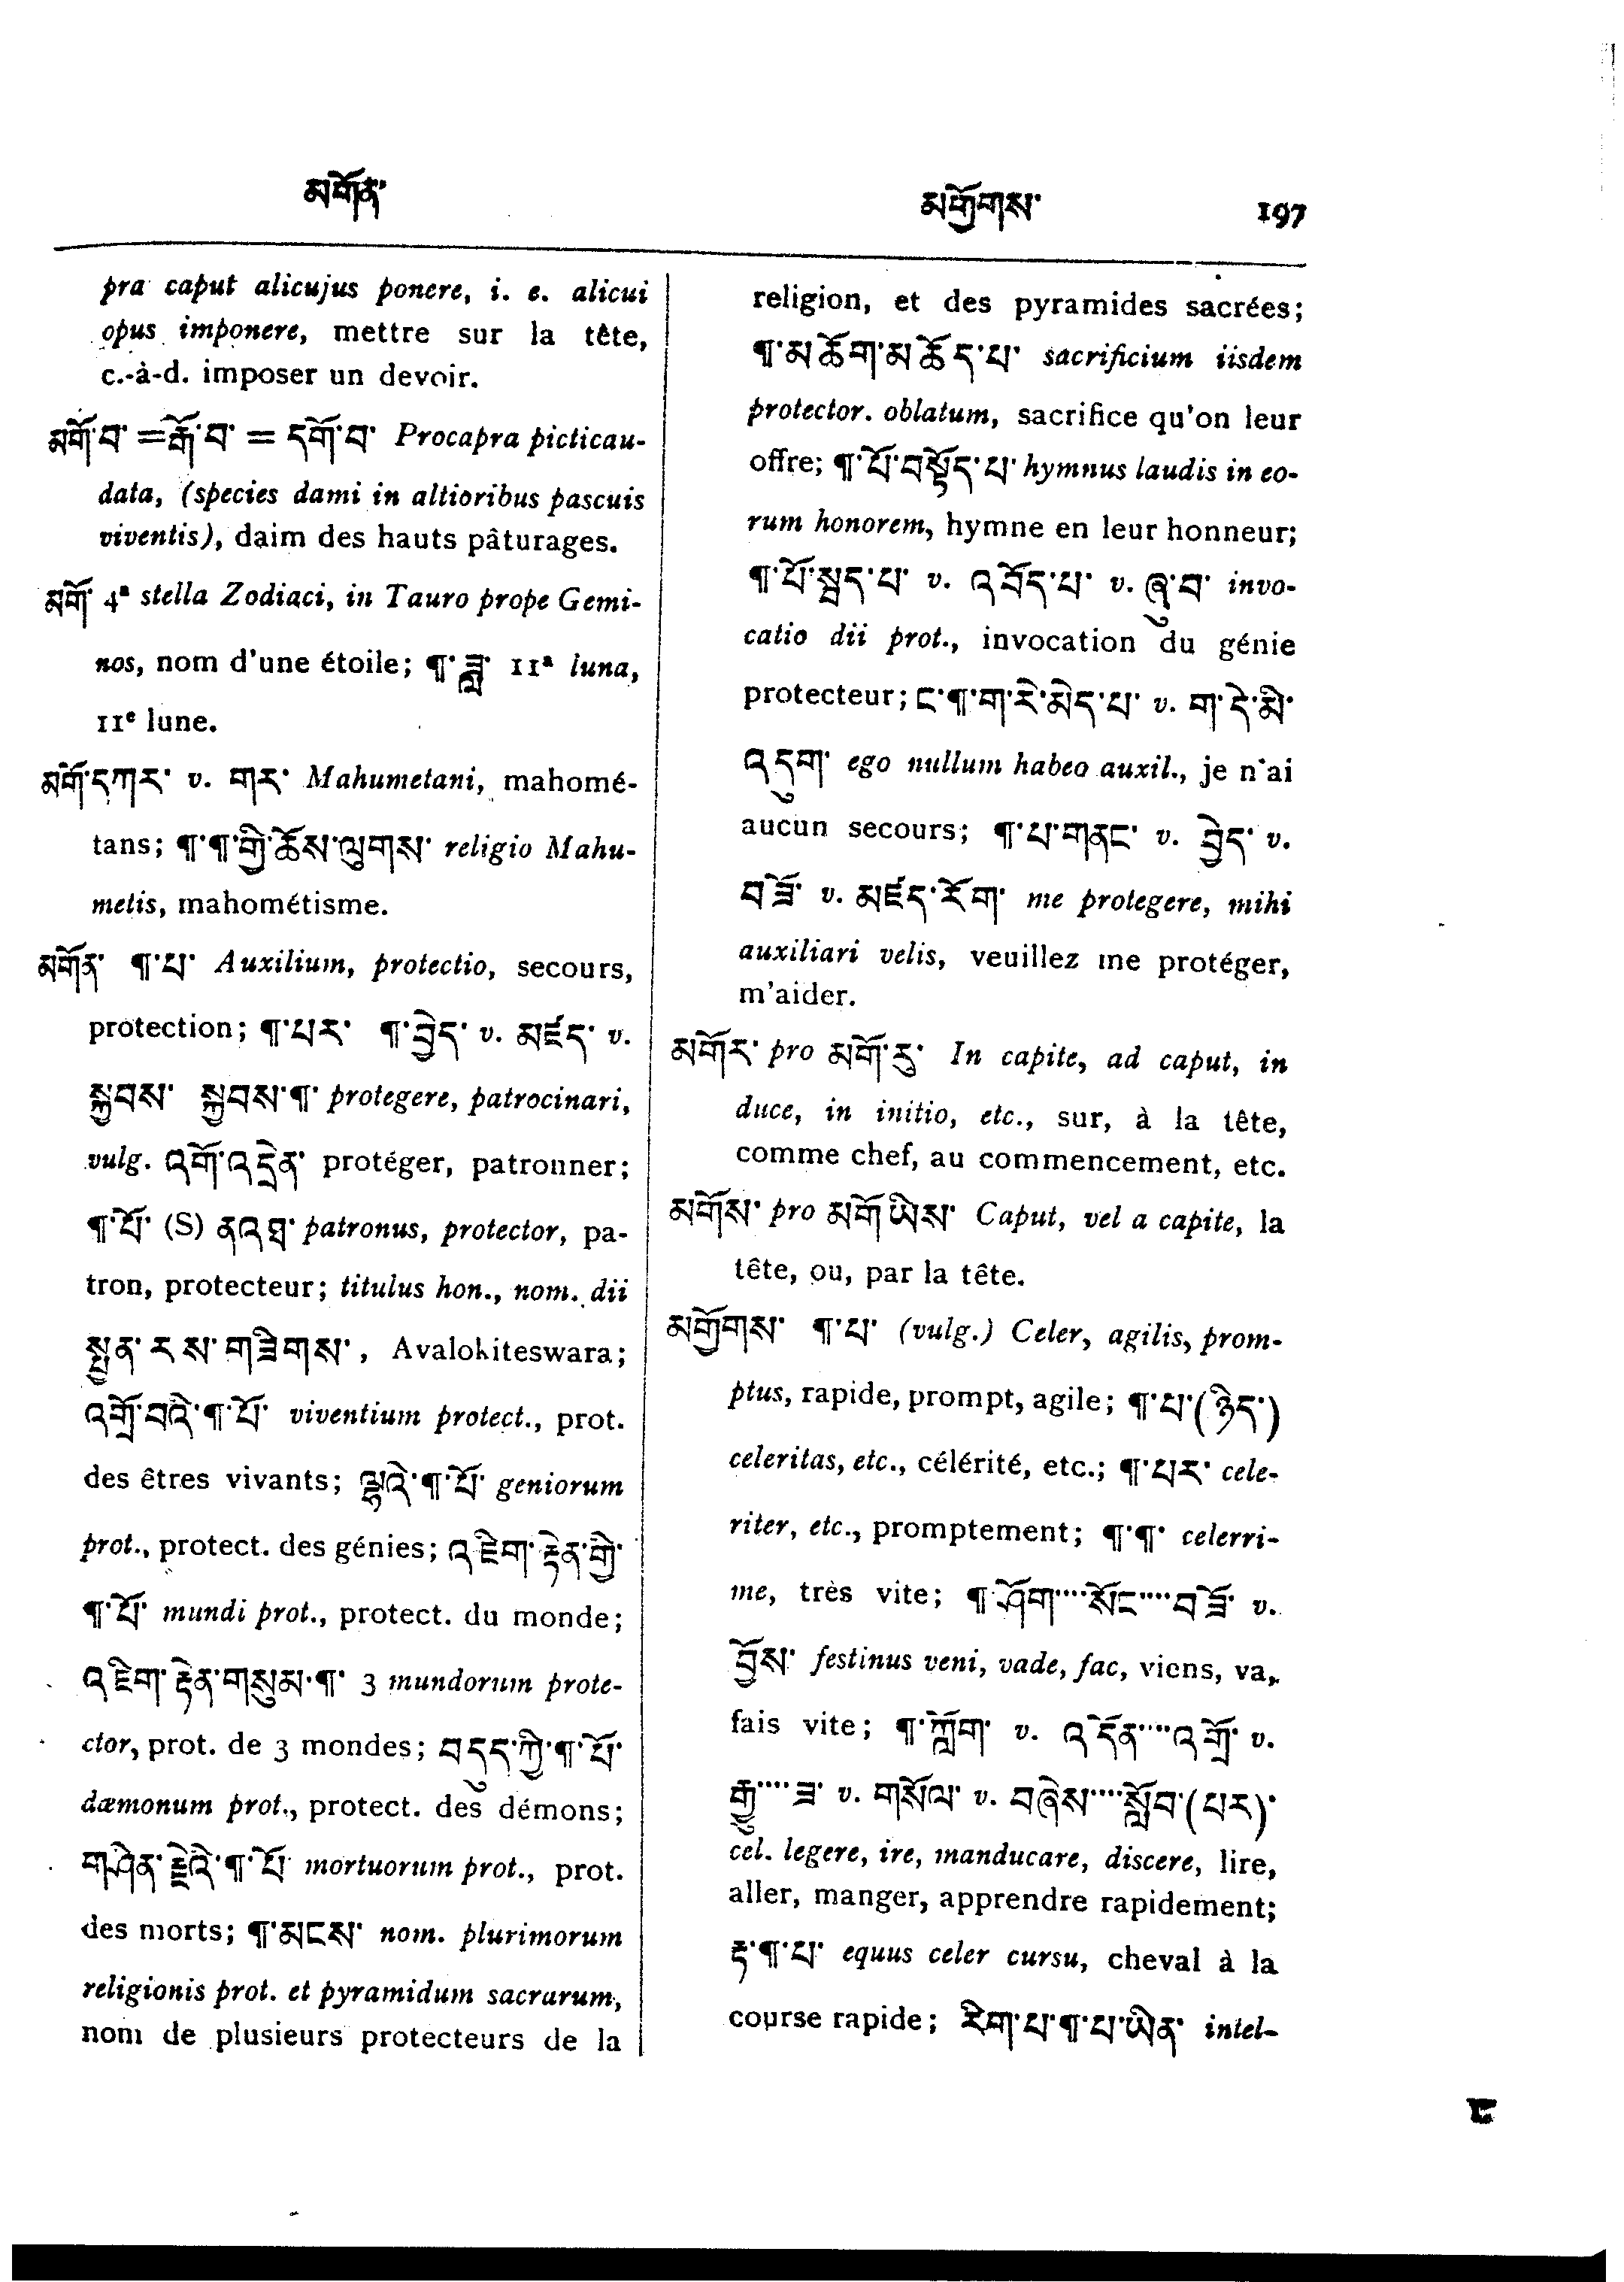 མགོན་
མགྱོགས་ 197
pra caput alicujus ponere, i. e. alicui
opus imponere, mettre sur la tête,
c.-à-d. imposer un devoir.
མགོ་བ་ = རྒོ་བ་ = དགོ་བ་ Procapra picticau-
data, (species dami in altioribus pascuis
viventis), daim des hauts pâturages.
མགོ་ 4ª stella Zodiaci, in Tauro prope Gemi-
nos, nom d'une étoile; ¶་ཟླ་ 11ª luna,
11e lune.
མགོ་དཀར་ v. གར་ Mahumetani, mahomé-
tans; ¶་¶་གྱི་ཆོས་ལུགས་ religio Mahu-
metis, mahométisme.
མགོན་ ¶་པ་ Auxilium, protectio, secours,
protection; ¶་པར་ ¶་བྱེད་ v. མཛད་ v.
སྐྱབས་ སྐྱབས་¶་ protegere, patrocinari,
vulg. འགོ་འདྲེན་ protéger, patronner;
¶་པོ་ (S) ནའཐ་ patronus, protector, pa-
tron, protecteur; titulus hon., nom. dii
སྤྱན་རས་གཟིགས་, Avalokiteswara;
འགྲོ་བའི་¶་པོ་ viventium protect., prot.
des êtres vivants; ལྷའི་¶་པོ་ geniorum
prot., protect. des génies; འཇིག་རྟེན་གྱི་
¶་པོ་ mundi prot., protect. du monde;
འཇིག་རྟེན་གསུམ་¶་ 3 mundorum prote-
ctor, prot. de 3 mondes; བདུད་ཀྱི་¶་པོ་
dæmonum prot., protect. des démons;
གཤིན་རྗེའི་¶་པོ་ mortuorum prot., prot.
des morts; ¶་མངས་ nom. plurimorum
religionis prot. et pyramidum sacrarum,
nom de plusieurs protecteurs de la
religion, et des pyramides sacrées;
¶་མཆོག་མཆོད་པ་ sacrificium iisdem
protector. oblatum, sacrifice qu'on leur
offre; ¶་པོ་བསྟོད་པ་ hymnus laudis in eo-
rum honorem, hymne en leur honneur;
¶་པོ་སྦྲད་པ་ v. འབོད་པ་ v. ཞུ་བ་ invo-
catio dii prot., invocation du génie
protecteur; ང་¶་ག་རེ་མེད་པ་ v. ག་དེ་མི་
འདུག་ ego nullum habeo auxil., je n'ai
aucun secours; ¶་པ་གནང་ v. བྱེད་ v.
བཟོ་ v. མཛད་རོག་ me protegere, mihi
auxiliari velis, veuillez me protéger,
m'aider.
མགོར་ pro མགོ་རུ་ In capite, ad caput, in
duce, in initio, etc., sur, à la tête,
comme chef, au commencement, etc.
མགོས་ pro མགོ་ཡིས་ Caput, vel a capite, la
tête, ou, par la tête.
མགྱོགས་ ¶་པ་ (vulg.) Celer, agilis, prom-
ptus, rapide, prompt, agile; ¶་པ་(ཉིད་)
celeritas, etc., célérité, etc.; ¶་པར་ cele-
riter, etc., promptement; ¶་¶་ celerri-
me, très vite; ¶་ཤོག་···སོང་···བཟོ་ v.
བྱོས་ festinus veni, vade, fac, viens, va,
fais vite; ¶་ཀློག་ v. འདོན་···འགྲོ་ v.
རྒྱུ་···ཟ་ v. གསོལ་ v. བཞེས་···སློབ་(པར)་
cel. legere, ire, manducare, discere, lire,
aller, manger, apprendre rapidement;
རྟ་¶་པ་ equus celer cursu, cheval à la
course rapide; རིག་པ་¶་པ་ཡིན་ intel-